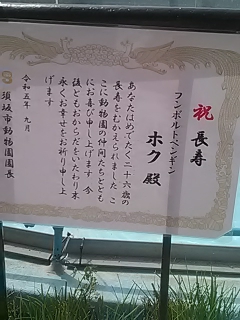 祝 長寿
フンボルトペンギン
ホク 殿
あなたはめでたく二十六歳の
長寿をむかえられました こ
こに動物園の仲間たちととも
にお喜び申し上げます 今
後ともおからだをいたわり末
永くお幸せをお祈り申し上
げます
令和五年 九月
須坂市動物園園長